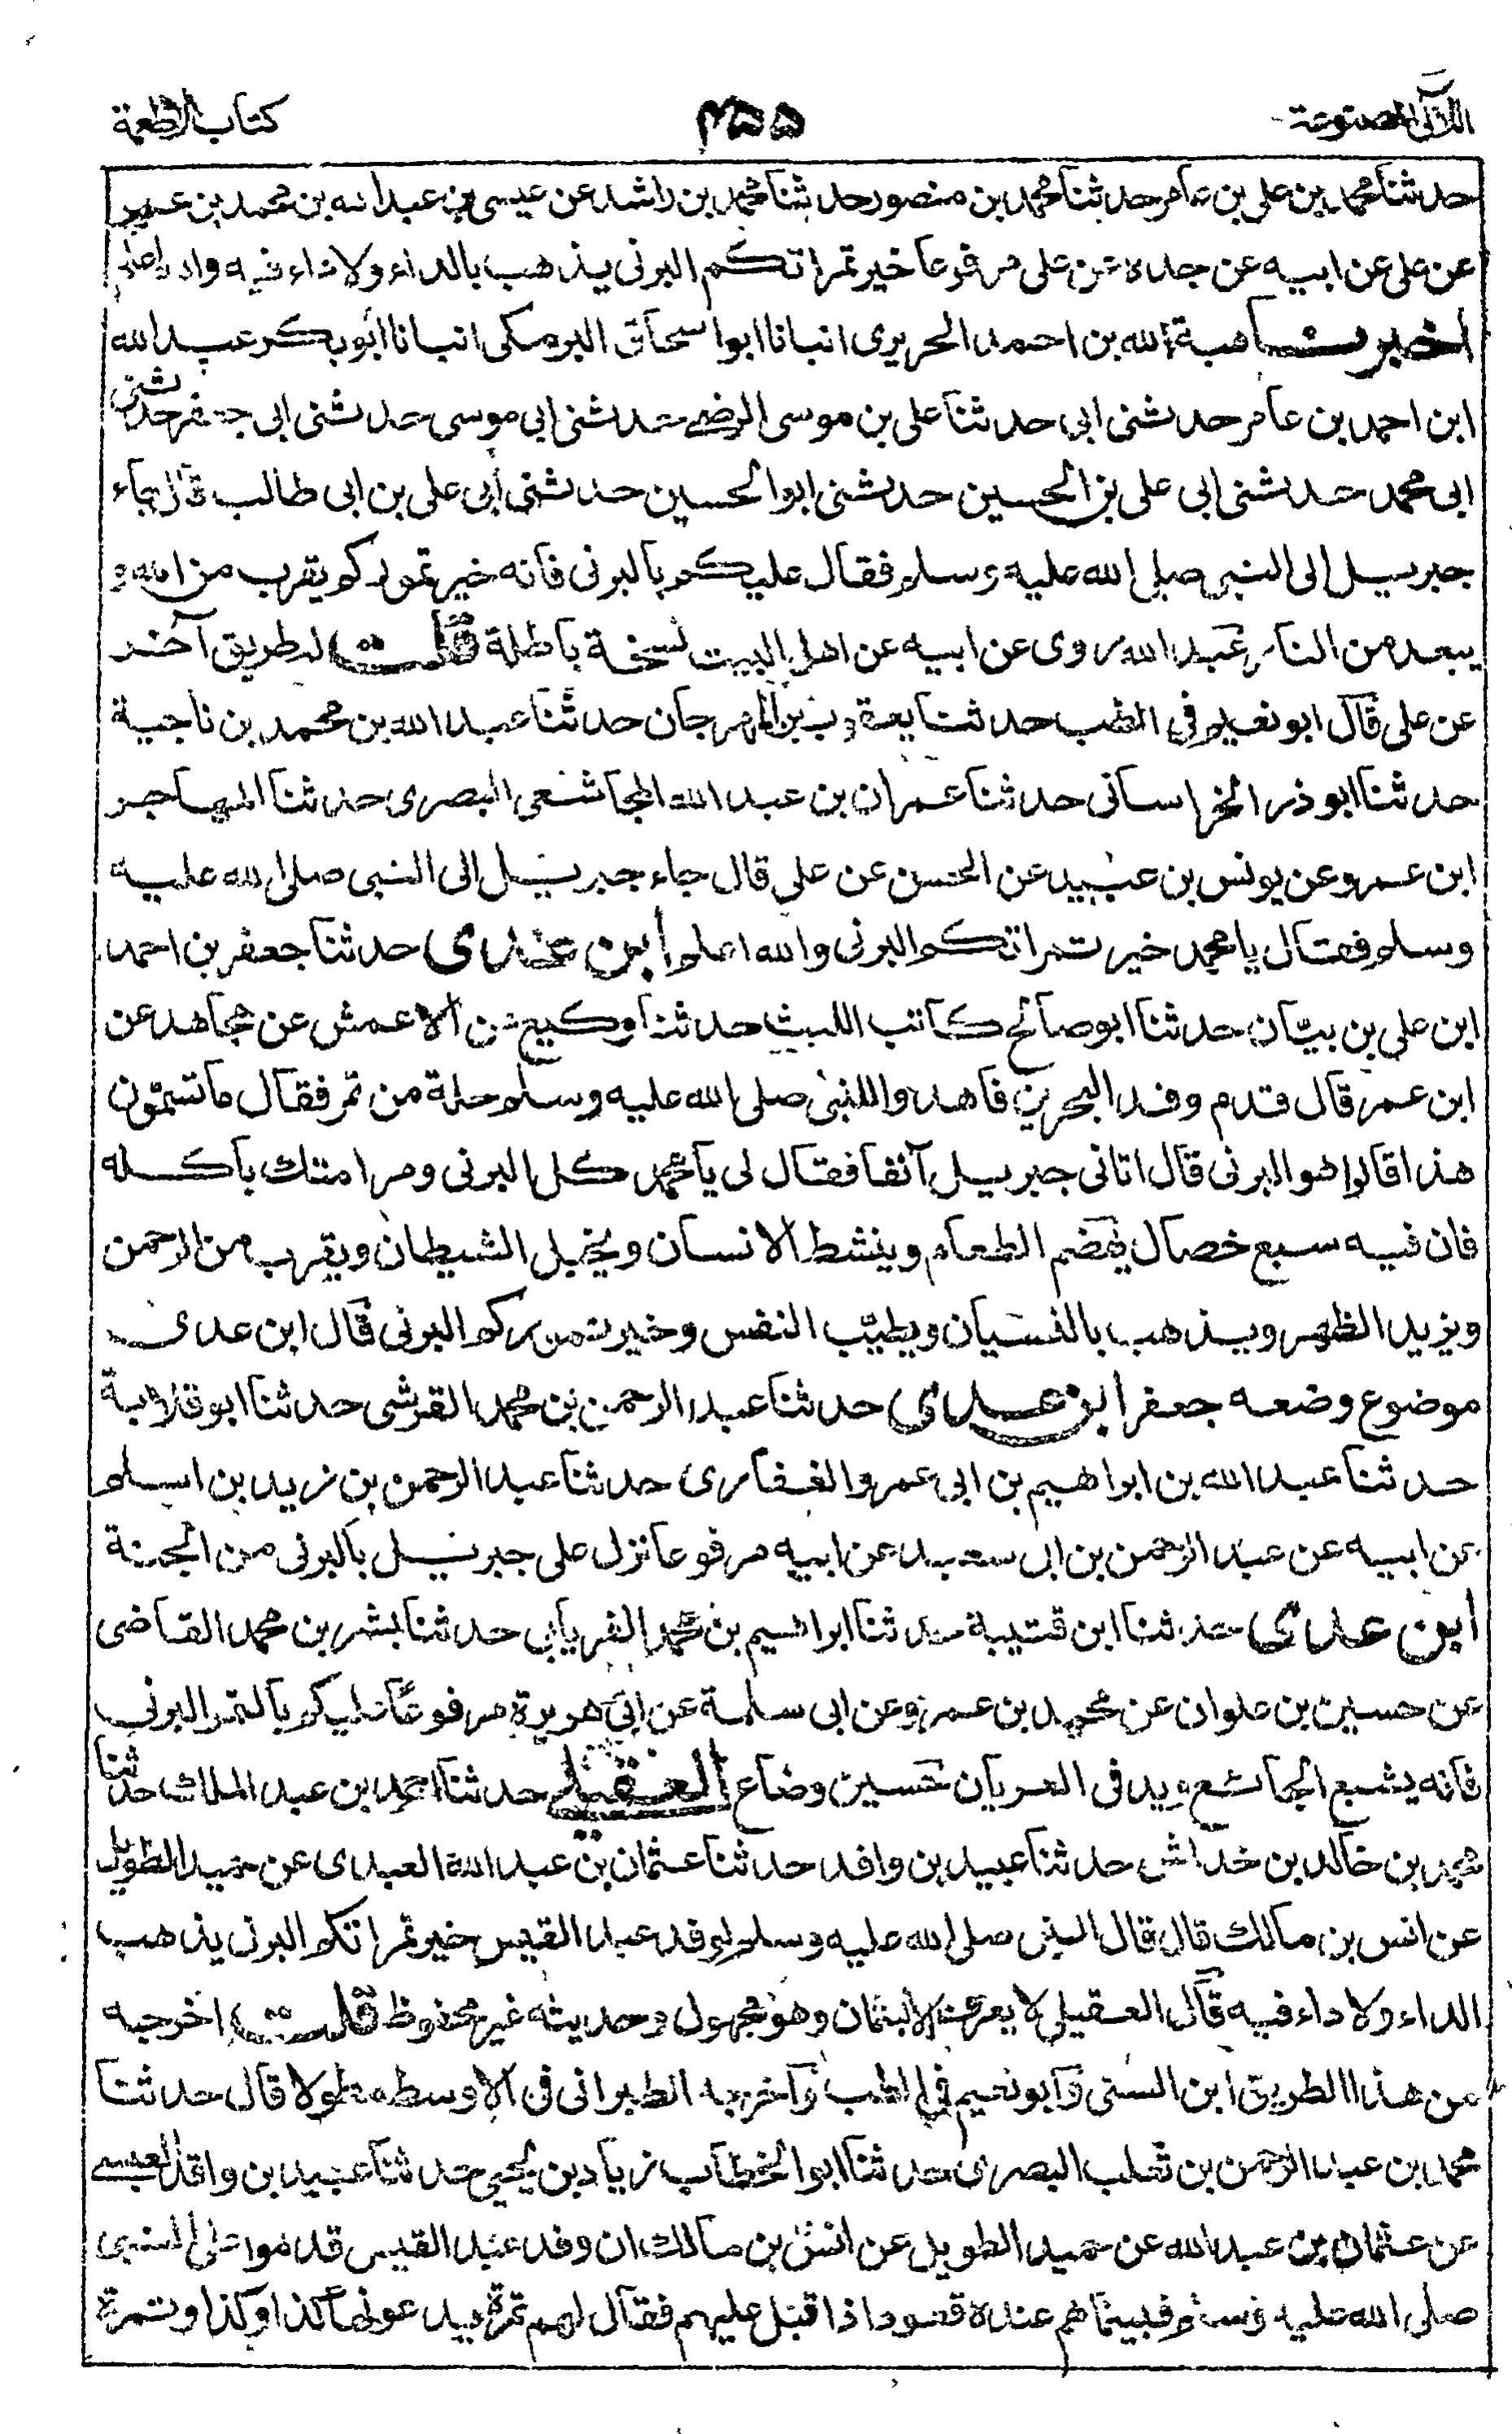 اللآلی المصنوعة
۴۵۵
كتاب الاطعمة
حدثنا محمد بن علی بن عامر حدثنا محمد بن منصور حدثنا محمد بن راشد عن عیسی بن عبد الله بن محمد بن عمر
عن علی عن ابیه عن جده عن علی مرفوعا خیر تمراتكم البرنی یذهب بالداء ولا داء فیه والله اعلم
اخبرنا هبة الله بن احمد الحریری انبانا ابو اسحاق البرمكی انبانا أبو بكر عبد الله
ابن احمد بن عامر حدثنی ابی حدثنا علی بن موسی الرضی حدثنی ابی موسی حدثنی ابی جعفر حدثنی
ابی محمد حدثنی ابی علی بن الحسین حدثنی ابو الحسین حدثنی أبی علی بن ابی طالب قال جاء
جبریل الی النبی صلی الله علیه وسلم فقال علیكم بالبرنی فانه خیر تموركم یقرب من الله و
یبعد من النار عبد الله روی عن ابیه عن اهل البیت نسخة باطلة قلت له طریق آخر
عن علی قال ابو نعیم فی الطب حدثنا یعقوب بن المهرجان حدثنا عبد الله بن محمد بن ناجیة
حدثنا ابو ذر الخراسانی حدثنا عمران بن عبد الله المجاشعی البصری حدثنا المهاجر
ابن عمرو عن یونس بن عبید عن الحسن عن علی قال جاء جبریل الی النبی صلی الله علیه
وسلم فقال یا محمد خیر تمراتكم البرنی والله اعلم أبن عدی حدثنا جعفر بن احمد
ابن علی بن بیّان حدثنا ابو صالح كاتب اللیث حدثنا وكیع عن الاعمش عن مجاهد عن
ابن عمر قال قدم وفد البحرین فاهدوا للنبی صلی الله علیه وسلم حلة من تمر فقال ما تسمّون
هذا قالوا هو البرنی قال اتانی جبریل آنفا فقال لی یا محمد كل البرنی ومر امتك باكله
فان فیه سبع خصال یهضم الطعام وینشط الانسان ویخبل الشیطان ویقرب من الرحمن
ویزید الظهر ویذهب بالنسیان ویطیّب النفس وخیر تمركم البرنی قال ابن عدی
موضوع وضعه جعفر ابن عدی حدثنا عبد الرحمن بن محمد القرشی حدثنا ابو قلابة
حدثنا عبد الله بن ابراهیم بن ابی عمرو الغفاری حدثنا عبد الرحمن بن زید بن اسلم
عن ابیه عن عبد الرحمن بن ابی سعید عن ابیه مرفوعا نزل علی جبریل بالبرنی من الجنة
ابن عدی حدثنا ابن قتیبة حدثنا ابراهیم بن محمد الفریابی حدثنا بشر بن محمد القاضی
عن حسین بن علوان عن محمد بن عمرو عن ابی سلمة عن ابی هریرة مرفوعا علیكم بالتمر البرنی
فانه یشبع الجائع ویدفی العریان حسین وضاع العقیلی حدثنا احمد بن عبد الملك حدثنا
محمد بن خالد بن خداش حدثنا عبید بن واقد حدثنا عثمان بن عبد الله العبدی عن حمید الطویل
عن انس بن مالك قال قال النبی صلی الله علیه وسلم لوفد عبد القیس خیر تمراتكم البرنی یذهب
الداء ولا داء فیه قال العقیلی لا یعرف الا بعثمان وهو مجهول وحدیثه غیر محفوظ قلت اخرجه
من هذا الطریق ابن السنی وابو نعیم فی الطب واخرجه الطبرانی فی الاوسط مطولا قال حدثنا
محمد بن عبد الرحمن بن ثعلب البصری حدثنا ابو الخطاب زیاد بن یحیی حدثنا عبید بن واقد العبسی
عن عثمان بن عبد الله عن حمید الطویل عن انس بن مالك ان وفد عبد القیس قدموا علی النبی
صلی الله علیه وسلم فبینما هم عنده قعود اذا قبل علیهم فقال لهم تمرة یدعونها كذا وكذا وتمرة